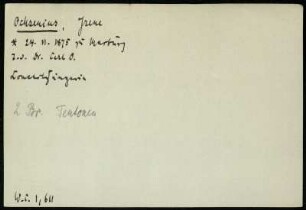 Ochsenius, Irene
* 24. VI. 1875 zu Marburg
T. v. Dr. Carl O.
Konzertsängerin
2 Br.
W.S. 1,611